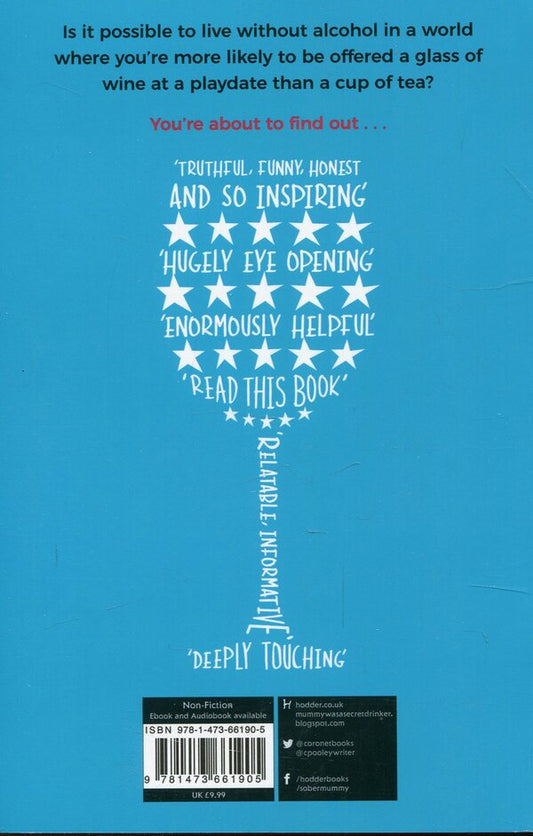 Is it possible to live without alcohol in a world
where you're more likely to be offered a glass of
wine at a playdate than a cup of tea?
You're about to find out . . .
'TRUTHFUL, FUNNY, HONEST
AND SO INSPIRING'
'HUGELY EYE OPENING'
'ENORMOUSLY HELPFUL'
'READ THIS BOOK'
'RELATABLE, INFORMATIVE'
'DEEPLY TOUCHING'
Non-Fiction
Ebook and Audiobook available
ISBN 978-1-473-66190-5
9 781473 661905
UK £9.99
hodder.co.uk
mummywasasecretdrinker.
blogspot.com
@coronetbooks
@cpooleywriter
/hodderbooks
/sobermummy